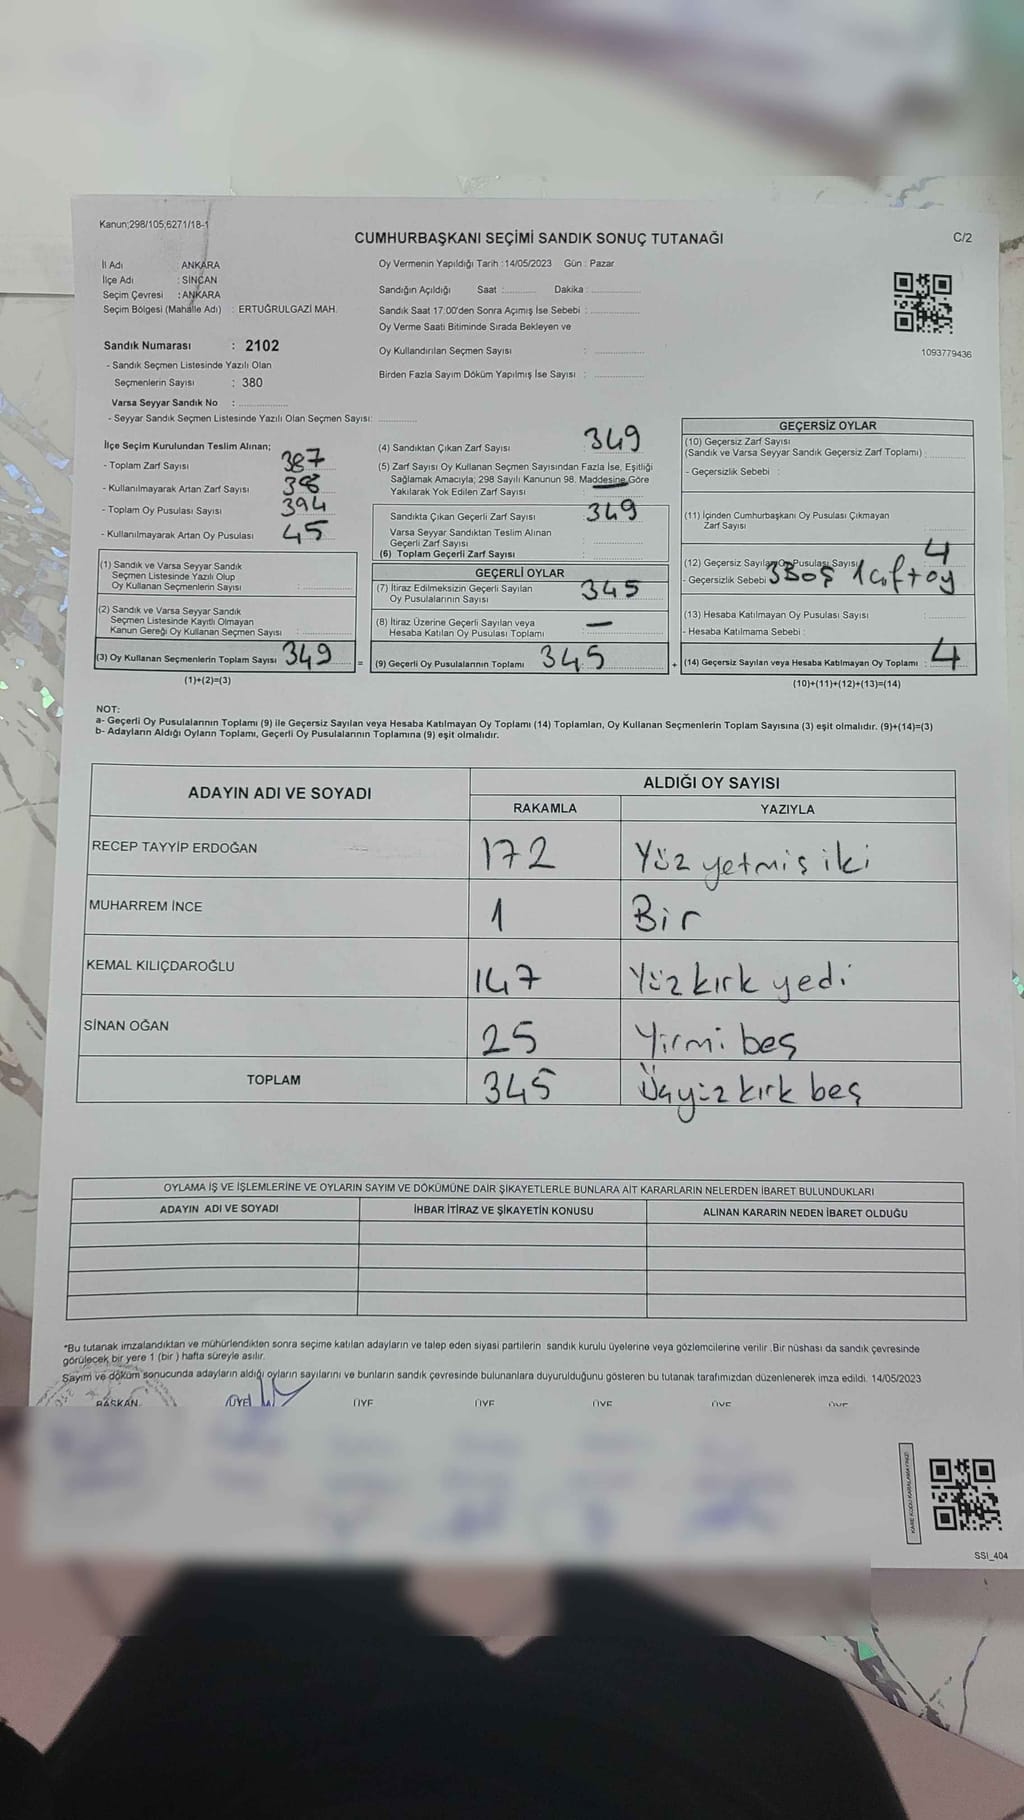 Kanun;298/105,6271/18-1
CUMHURBAŞKANI SEÇİMİ SANDIK SONUÇ TUTANAĞI
C/2
İl Adı : ANKARA
İlçe Adı : SİNCAN
Seçim Çevresi : ANKARA
Seçim Bölgesi (Mahalle Adı) : ERTUĞRULGAZİ MAH.
Oy Vermenin Yapıldığı Tarih :14/05/2023 Gün : Pazar
Sandığın Açıldığı Saat :........... Dakika :...............
Sandık Saat 17:00'den Sonra Açımış İse Sebebi :...............
Oy Verme Saati Bitiminde Sırada Bekleyen ve
Oy Kullandırılan Seçmen Sayısı : ...............
Birden Fazla Sayım Döküm Yapılmış İse Sayısı : ...............
1093779436
Sandık Numarası : 2102
- Sandık Seçmen Listesinde Yazılı Olan
Seçmenlerin Sayısı : 380
Varsa Seyyar Sandık No : ...............
- Seyyar Sandık Seçmen Listesinde Yazılı Olan Seçmen Sayısı: ...............
İlçe Seçim Kurulundan Teslim Alınan;
- Toplam Zarf Sayısı 387
- Kullanılmayarak Artan Zarf Sayısı 38
- Toplam Oy Pusulası Sayısı 394
- Kullanılmayarak Artan Oy Pusulası 45
(1) Sandık ve Varsa Seyyar Sandık
Seçmen Listesinde Yazılı Olup
Oy Kullanan Seçmenlerin Sayısı : ...............
(2) Sandık ve Varsa Seyyar Sandık
Seçmen Listesinde Kayıtlı Olmayan
Kanun Gereği Oy Kullanan Seçmen Sayısı : ...............
(3) Oy Kullanan Seçmenlerin Toplam Sayısı 349
(1)+(2)=(3)
=
(4) Sandıktan Çıkan Zarf Sayısı 349
(5) Zarf Sayısı Oy Kullanan Seçmen Sayısından Fazla İse, Eşitliği
Sağlamak Amacıyla; 298 Sayılı Kanunun 98. Maddesine Göre
Yakılarak Yok Edilen Zarf Sayısı —
Sandıkta Çıkan Geçerli Zarf Sayısı 349
Varsa Seyyar Sandıktan Teslim Alınan
Geçerli Zarf Sayısı
(6) Toplam Geçerli Zarf Sayısı
GEÇERLİ OYLAR
(7) İtiraz Edilmeksizin Geçerli Sayılan
Oy Pusulalarının Sayısı 345
(8) İtiraz Üzerine Geçerli Sayılan veya
Hesaba Katılan Oy Pusulası Toplamı —
(9) Geçerli Oy Pusulalarının Toplamı 345
+
GEÇERSİZ OYLAR
(10) Geçersiz Zarf Sayısı
(Sandık ve Varsa Seyyar Sandık Geçersiz Zarf Toplamı) :
- Geçersizlik Sebebi :
(11) İçinden Cumhurbaşkanı Oy Pusulası Çıkmayan
Zarf Sayısı
(12) Geçersiz Sayılan Oy Pusulası Sayısı 4
- Geçersizlik Sebebi 3 Boş 1 çift oy
(13) Hesaba Katılmayan Oy Pusulası Sayısı :
- Hesaba Katılmama Sebebi :
(14) Geçersiz Sayılan veya Hesaba Katılmayan Oy Toplamı : 4
(10)+(11)+(12)+(13)=(14)
NOT:
a- Geçerli Oy Pusulalarının Toplamı (9) ile Geçersiz Sayılan veya Hesaba Katılmayan Oy Toplamı (14) Toplamları, Oy Kullanan Seçmenlerin Toplam Sayısına (3) eşit olmalıdır. (9)+(14)=(3)
b- Adayların Aldığı Oyların Toplamı, Geçerli Oy Pusulalarının Toplamına (9) eşit olmalıdır.
ADAYIN ADI VE SOYADI
ALDIĞI OY SAYISI
RAKAMLA YAZIYLA
RECEP TAYYİP ERDOĞAN 172 Yüz yetmiş iki
MUHARREM İNCE 1 Bir
KEMAL KILIÇDAROĞLU 147 Yüz kırk yedi
SİNAN OĞAN 25 Yirmi beş
TOPLAM 345 Üçyüz kırk beş
OYLAMA İŞ VE İŞLEMLERİNE VE OYLARIN SAYIM VE DÖKÜMÜNE DAİR ŞİKAYETLERLE BUNLARA AİT KARARLARIN NELERDEN İBARET BULUNDUKLARI
ADAYIN ADI VE SOYADI İHBAR İTİRAZ VE ŞİKAYETİN KONUSU ALINAN KARARIN NEDEN İBARET OLDUĞU
*Bu tutanak imzalandıktan ve mühürlendikten sonra seçime katılan adayların ve talep eden siyasi partilerin sandık kurulu üyelerine veya gözlemcilerine verilir .Bir nüshası da sandık çevresinde
görülecek bir yere 1 (bir ) hafta süreyle asılır.
Sayım ve döküm sonucunda adayların aldığı oyların sayılarını ve bunların sandık çevresinde bulunanlara duyurulduğunu gösteren bu tutanak tarafımızdan düzenlenerek imza edildi. 14/05/2023
BAŞKAN ÜYE ÜYE ÜYE ÜYE ÜYE ÜYE
KARE KODU KARALAMAYINIZ!
SSI_404